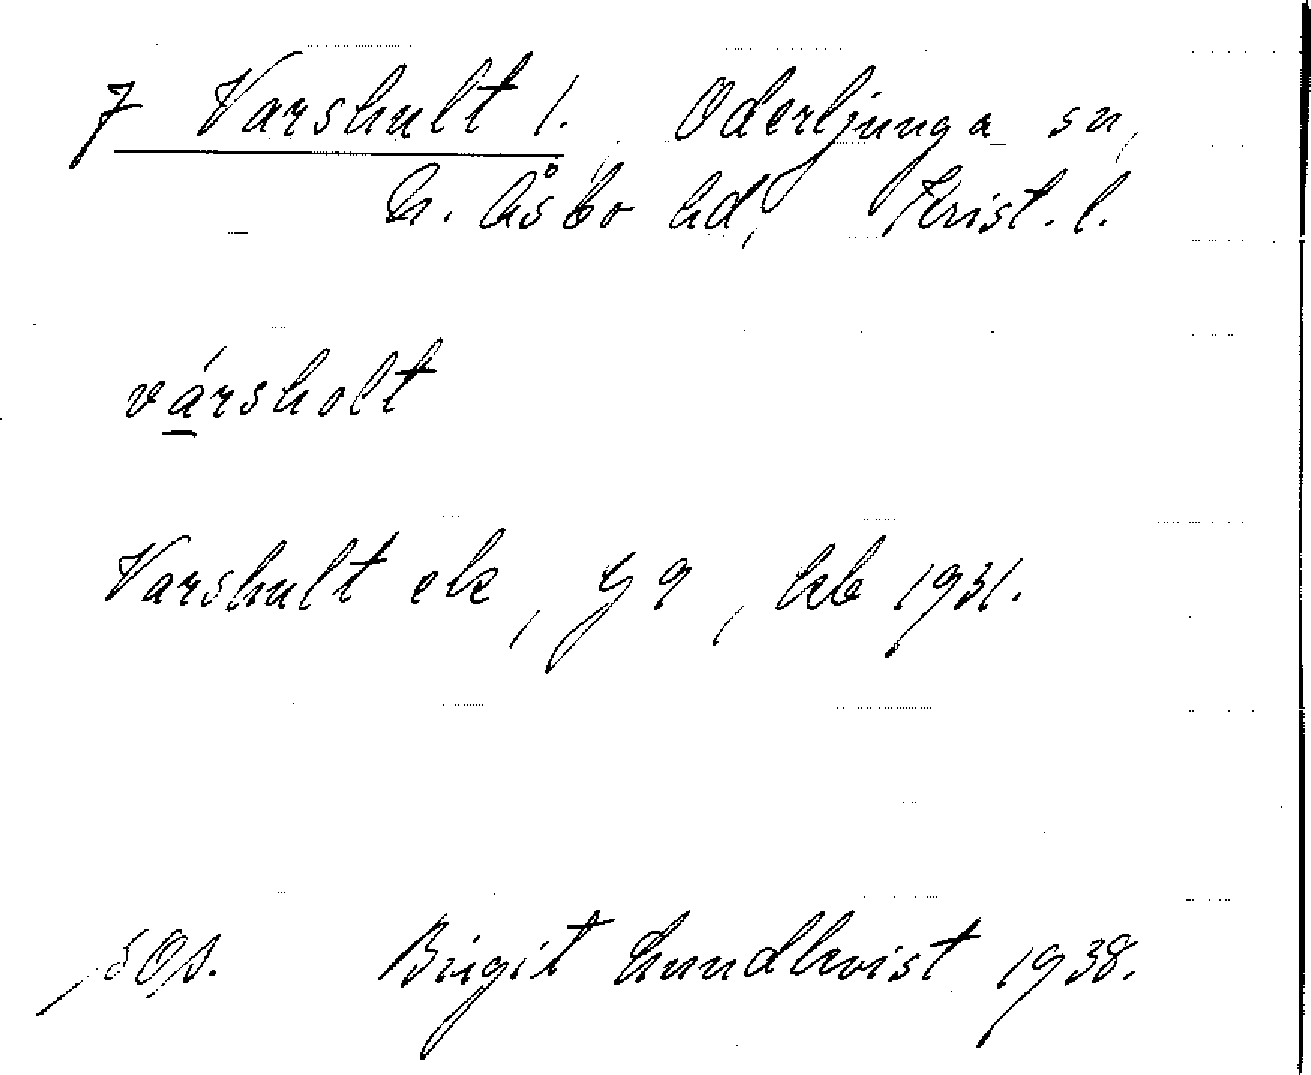 7 Varshult 1. Oderljunga sn,
N. Åsbo hd, Krist. l.
vársholt
Varshult ek, G 9, kb 1931.
SOs. Birgit Lundkvist 1938.